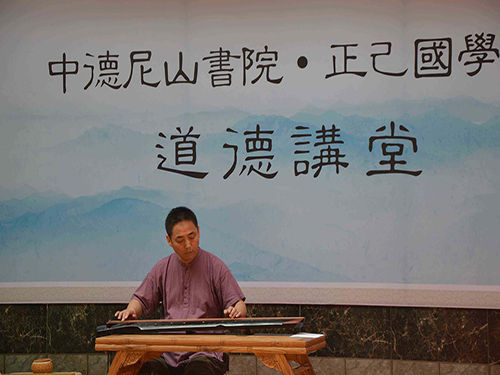 中德尼山書院·正己國學
道德講堂